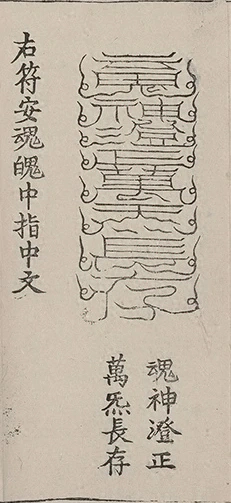 魂神澄正
萬炁長存
右符安魂魄中指中文